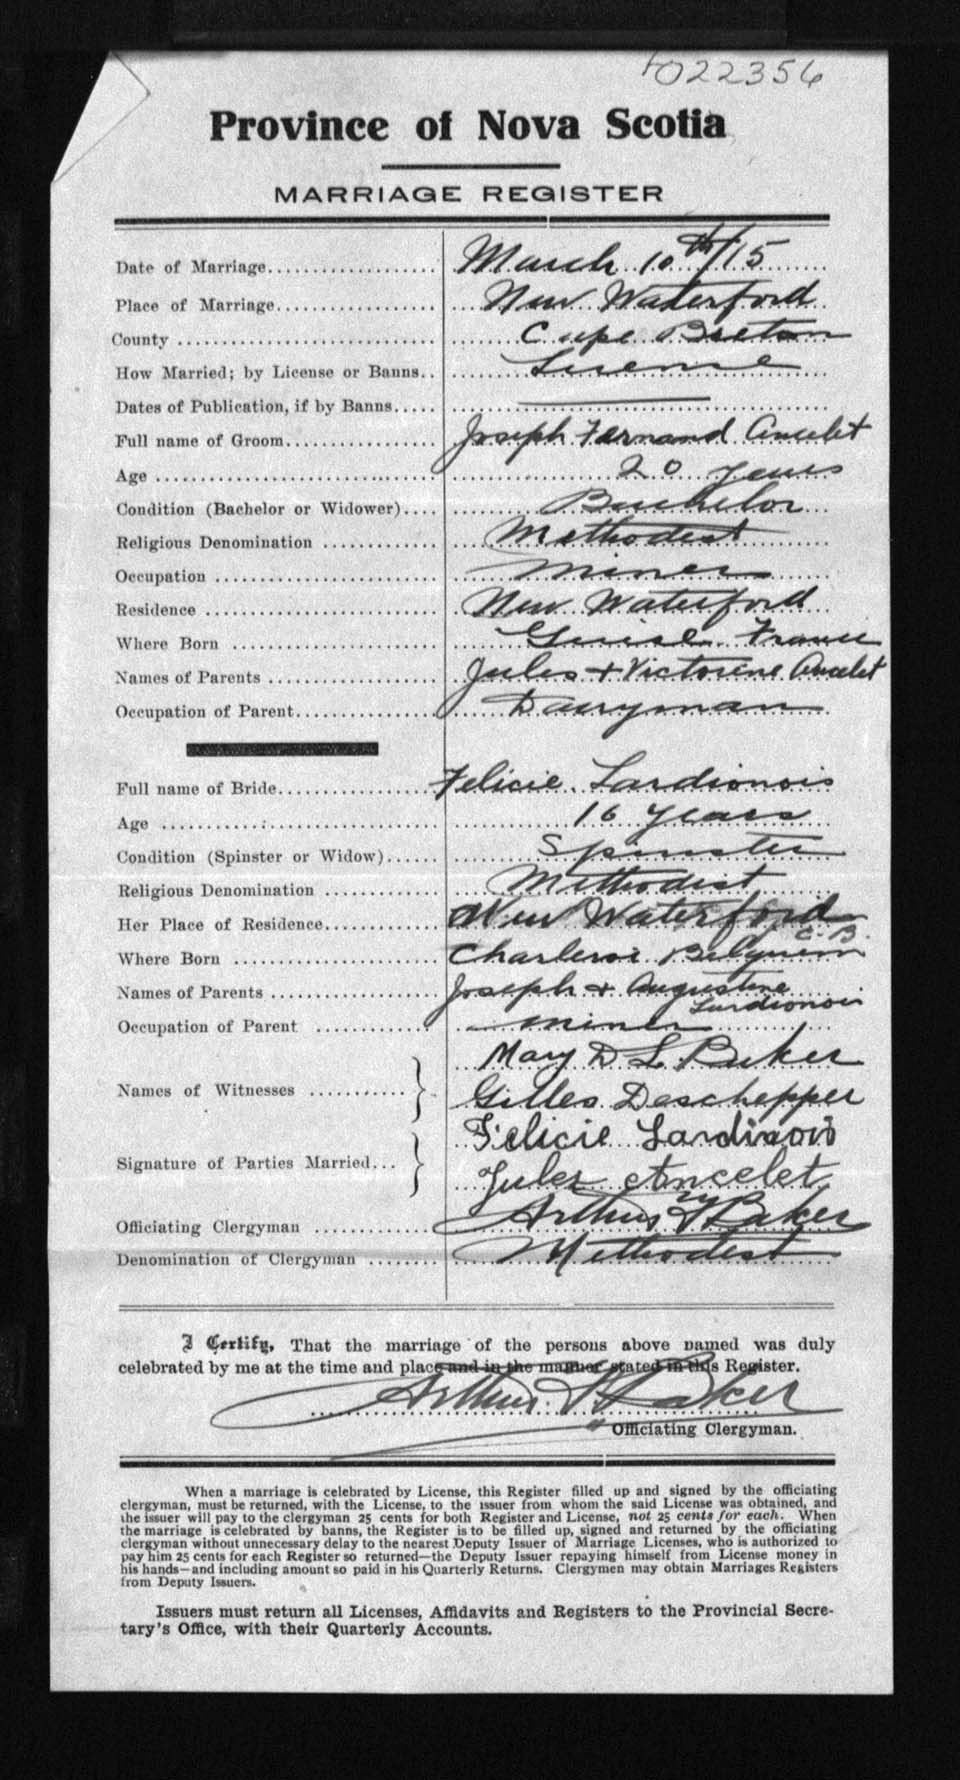 022356
Province of Nova Scotia
MARRIAGE REGISTER
Date of Marriage.................... March 10th/15
Place of Marriage................... New Waterford
County .............................. Cape Breton
How Married; by License or Banns.. License
Dates of Publication, if by Banns.....
Full name of Groom.................. Joseph Fernand Ancelet
Age ................................. 20 years
Condition (Bachelor or Widower).... Bachelor
Religious Denomination .............. Methodist
Occupation .......................... Miner
Residence ........................... New Waterford
Where Born ......................... France
Names of Parents .................... Jules + Victorine Ancelet
Occupation of Parent................. Dairyman
Full name of Bride................... Felicie Lardionois
Age ................................. 16 years
Condition (Spinster or Widow)...... Spinster
Religious Denomination .............. Methodist
Her Place of Residence............. New Waterford C.B.
Where Born ......................... Charleroi Belgium
Names of Parents .................... Joseph + Augustine Lardionois
Occupation of Parent ............... Miner
Names of Witnesses ........... Mary D L Baker
Gilles Deschepper
Signature of Parties Married... Felicie Lardinois
Jules Ancelet
Officiating Clergyman ............... Arthur Baker
Denomination of Clergyman ........ Methodist
I Certify, That the marriage of the persons above named was duly
celebrated by me at the time and place and in the manner stated in this Register.
Arthur Baker
Officiating Clergyman.
When a marriage is celebrated by License, this Register filled up and signed by the officiating
clergyman, must be returned, with the License, to the issuer from whom the said License was obtained, and
the issuer will pay to the clergyman 25 cents for both Register and License, not 25 cents for each. When
the marriage is celebrated by banns, the Register is to be filled up, signed and returned by the officiating
clergyman without unnecessary delay to the nearest Deputy Issuer of Marriage Licenses, who is authorized to
pay him 25 cents for each Register so returned—the Deputy Issuer repaying himself from License money in
his hands—and including amount so paid in his Quarterly Returns. Clergymen may obtain Marriages Registers
from Deputy Issuers.
Issuers must return all Licenses, Affidavits and Registers to the Provincial Secre-
tary's Office, with their Quarterly Accounts.